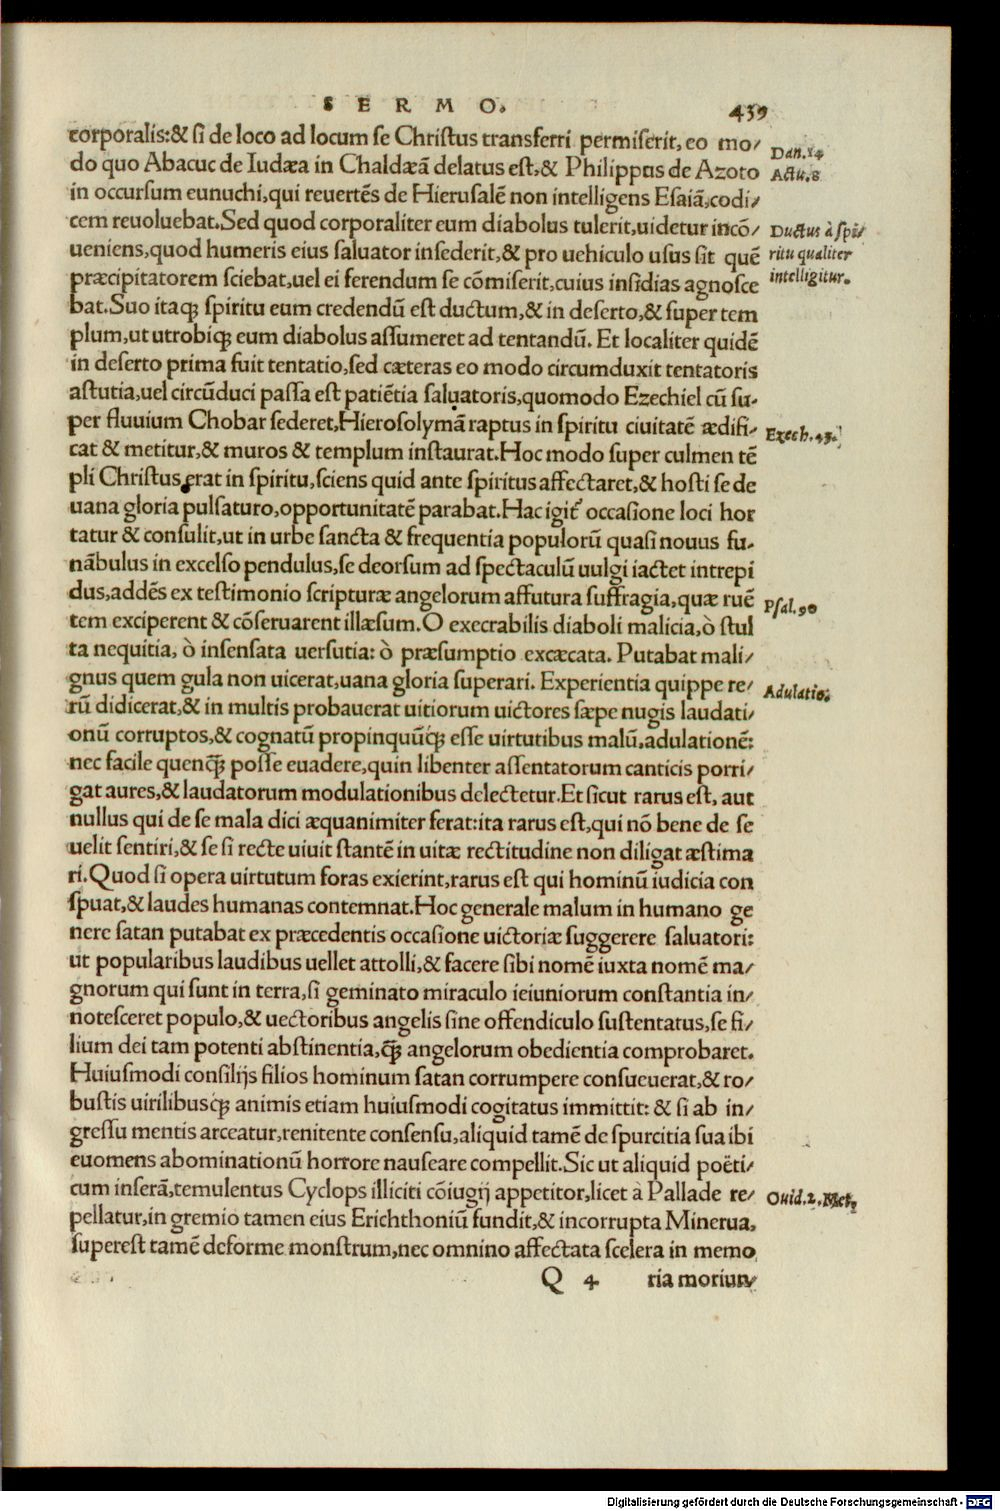 SERMO. 439
corporalis:& si de loco ad locum se Christus transferri permiserit, eo mo/
do quo Abacuc de Iudæa in Chaldæā delatus est,& Philippus de Azoto
in occursum eunuchi,qui reuertēs de Hierusalē non intelligens Esaiā,codi/
cem reuoluebat.Sed quod corporaliter eum diabolus tulerit,uidetur incō/
ueniens,quod humeris eius saluator insederit,& pro uehiculo usus sit quē
præcipitatorem sciebat,uel ei ferendum se cōmiserit,cuius insidias agnosce
bat.Suo itaq; spiritu eum credendū est ductum,& in deserto,& super tem
plum,ut utrobiq; eum diabolus assumeret ad tentandū. Et localiter quidē
in deserto prima fuit tentatio,sed cæteras eo modo circumduxit tentatoris
astutia,uel circūduci passa est patiētia saluatoris,quomodo Ezechiel cū su-
per fluuium Chobar sederet,Hierosolymā raptus in spiritu ciuitatē ædifi/
cat & metitur,& muros & templum instaurat.Hoc modo super culmen tē
pli Christus erat in spiritu,sciens quid ante spiritus affectaret,& hosti se de
uana gloria pulsaturo,opportunitatē parabat.Hac igit̃ occasione loci hor
tatur & consulit,ut in urbe sancta & frequentia populorū quasi nouus fu-
nābulus in excelso pendulus,se deorsum ad spectaculū uulgi iactet intrepi
dus,addēs ex testimonio scripturæ angelorum affutura suffragia,quæ ruē
tem exciperent & cōseruarent illæsum.O execrabilis diaboli malicia,ò stul
ta nequitia, ò insensata uersutia: ò præsumptio excæcata. Putabat mali/
gnus quem gula non uicerat,uana gloria superari. Experientia quippe re/
rū didicerat,& in multis probauerat uitiorum uictores sæpe nugis laudati/
onū corruptos,& cognatū propinquūq; esse uirtutibus malū,adulationē:
nec facile quenq̄; posse euadere,quin libenter assentatorum canticis porri/
gat aures,& laudatorum modulationibus delectetur.Et sicut rarus est, aut
nullus qui de se mala dici æquanimiter ferat:ita rarus est,qui nō bene de se
uelit sentiri,& se si recte uiuit stantē in uitæ rectitudine non diligat æstima
ri.Quod si opera uirtutum foras exierint,rarus est qui hominū iudicia con
spuat,& laudes humanas contemnat.Hoc generale malum in humano ge
nere satan putabat ex præcedentis occasione uictoriæ suggerere saluatori:
ut popularibus laudibus uellet attolli,& facere sibi nomē iuxta nomē ma/
gnorum qui sunt in terra,si geminato miraculo ieiuniorum constantia in/
notesceret populo,& uectoribus angelis sine offendiculo sustentatus,se fi/
lium dei tam potenti abstinentia,q̄; angelorum obedientia comprobaret.
Huiusmodi consilijs filios hominum satan corrumpere consueuerat,& ro/
bustis uirilibusq; animis etiam huiusmodi cogitatus immittit: & si ab in/
gressu mentis arceatur,renitente consensu,aliquid tamē de spurcitia sua ibi
euomens abominationū horrore nauseare compellit.Sic ut aliquid poëti/
cum inserā,temulentus Cyclops illiciti cōiugij appetitor,licet à Pallade re/
pellatur,in gremio tamen eius Erichthoniū fundit,& incorrupta Minerua,
superest tamē deforme monstrum,nec omnino affectata scelera in memo
Q 4 ria moriun/
Dan.14
Actu.8
Ductus à spi/
ritu qualiter
intelligitur.
Ezech.43.
Psal.90
Adulatio.
Ouid.2.Met.
Digitalisierung gefördert durch die Deutsche Forschungsgemeinschaft - DFG